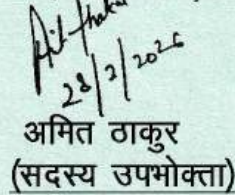 23/2/2026
अमित ठाकुर
(सदस्य उपभोक्ता)